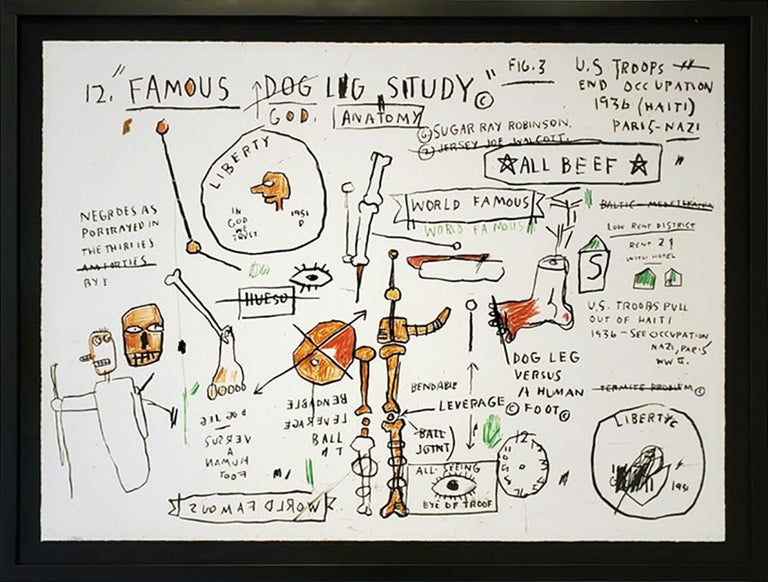 12. "FAMOUS DOG LEG STUDY" ©
GOD.
ANATOMY
FIG.3
U.S TROOPS
END OCCUPATION
1936 (HAITI)
PARIS-NAZI
① SUGAR RAY ROBINSON.
② JERSEY JOE WALCOTT.
☆ALL BEEF☆
LIBERTY
IN
GOD
WE
TRUST
1951
D
WORLD FAMOUS
WORLD FAMOUS
NEGROES AS
PORTRAYED IN
THE THIRTIES
AN FORTIES
BY:
HUESO
BALTIC - MEDETERANEAN
LOW RENT DISTRICT
RENT 21
WITH HOTEL
S
U.S. TROOBS PULL
OUT OF HAITI
1936 - SEE OCCUPATION
NAZI, PARIS
WW II.
TERMITE PROBLEM ©
DOG LEG
VERSUS
A HUMAN
© FOOT ©
BENDABLE
LEVERAGE
BALL
JOINT)
BENDABLE
LEVERAGE
BALL
DOG LEG
VERSUS
A
HUMAN
FOOT
WORLD FAMOUS
ALL-SEEING
EYE OF TROOF
12
LIBERTY©
1951